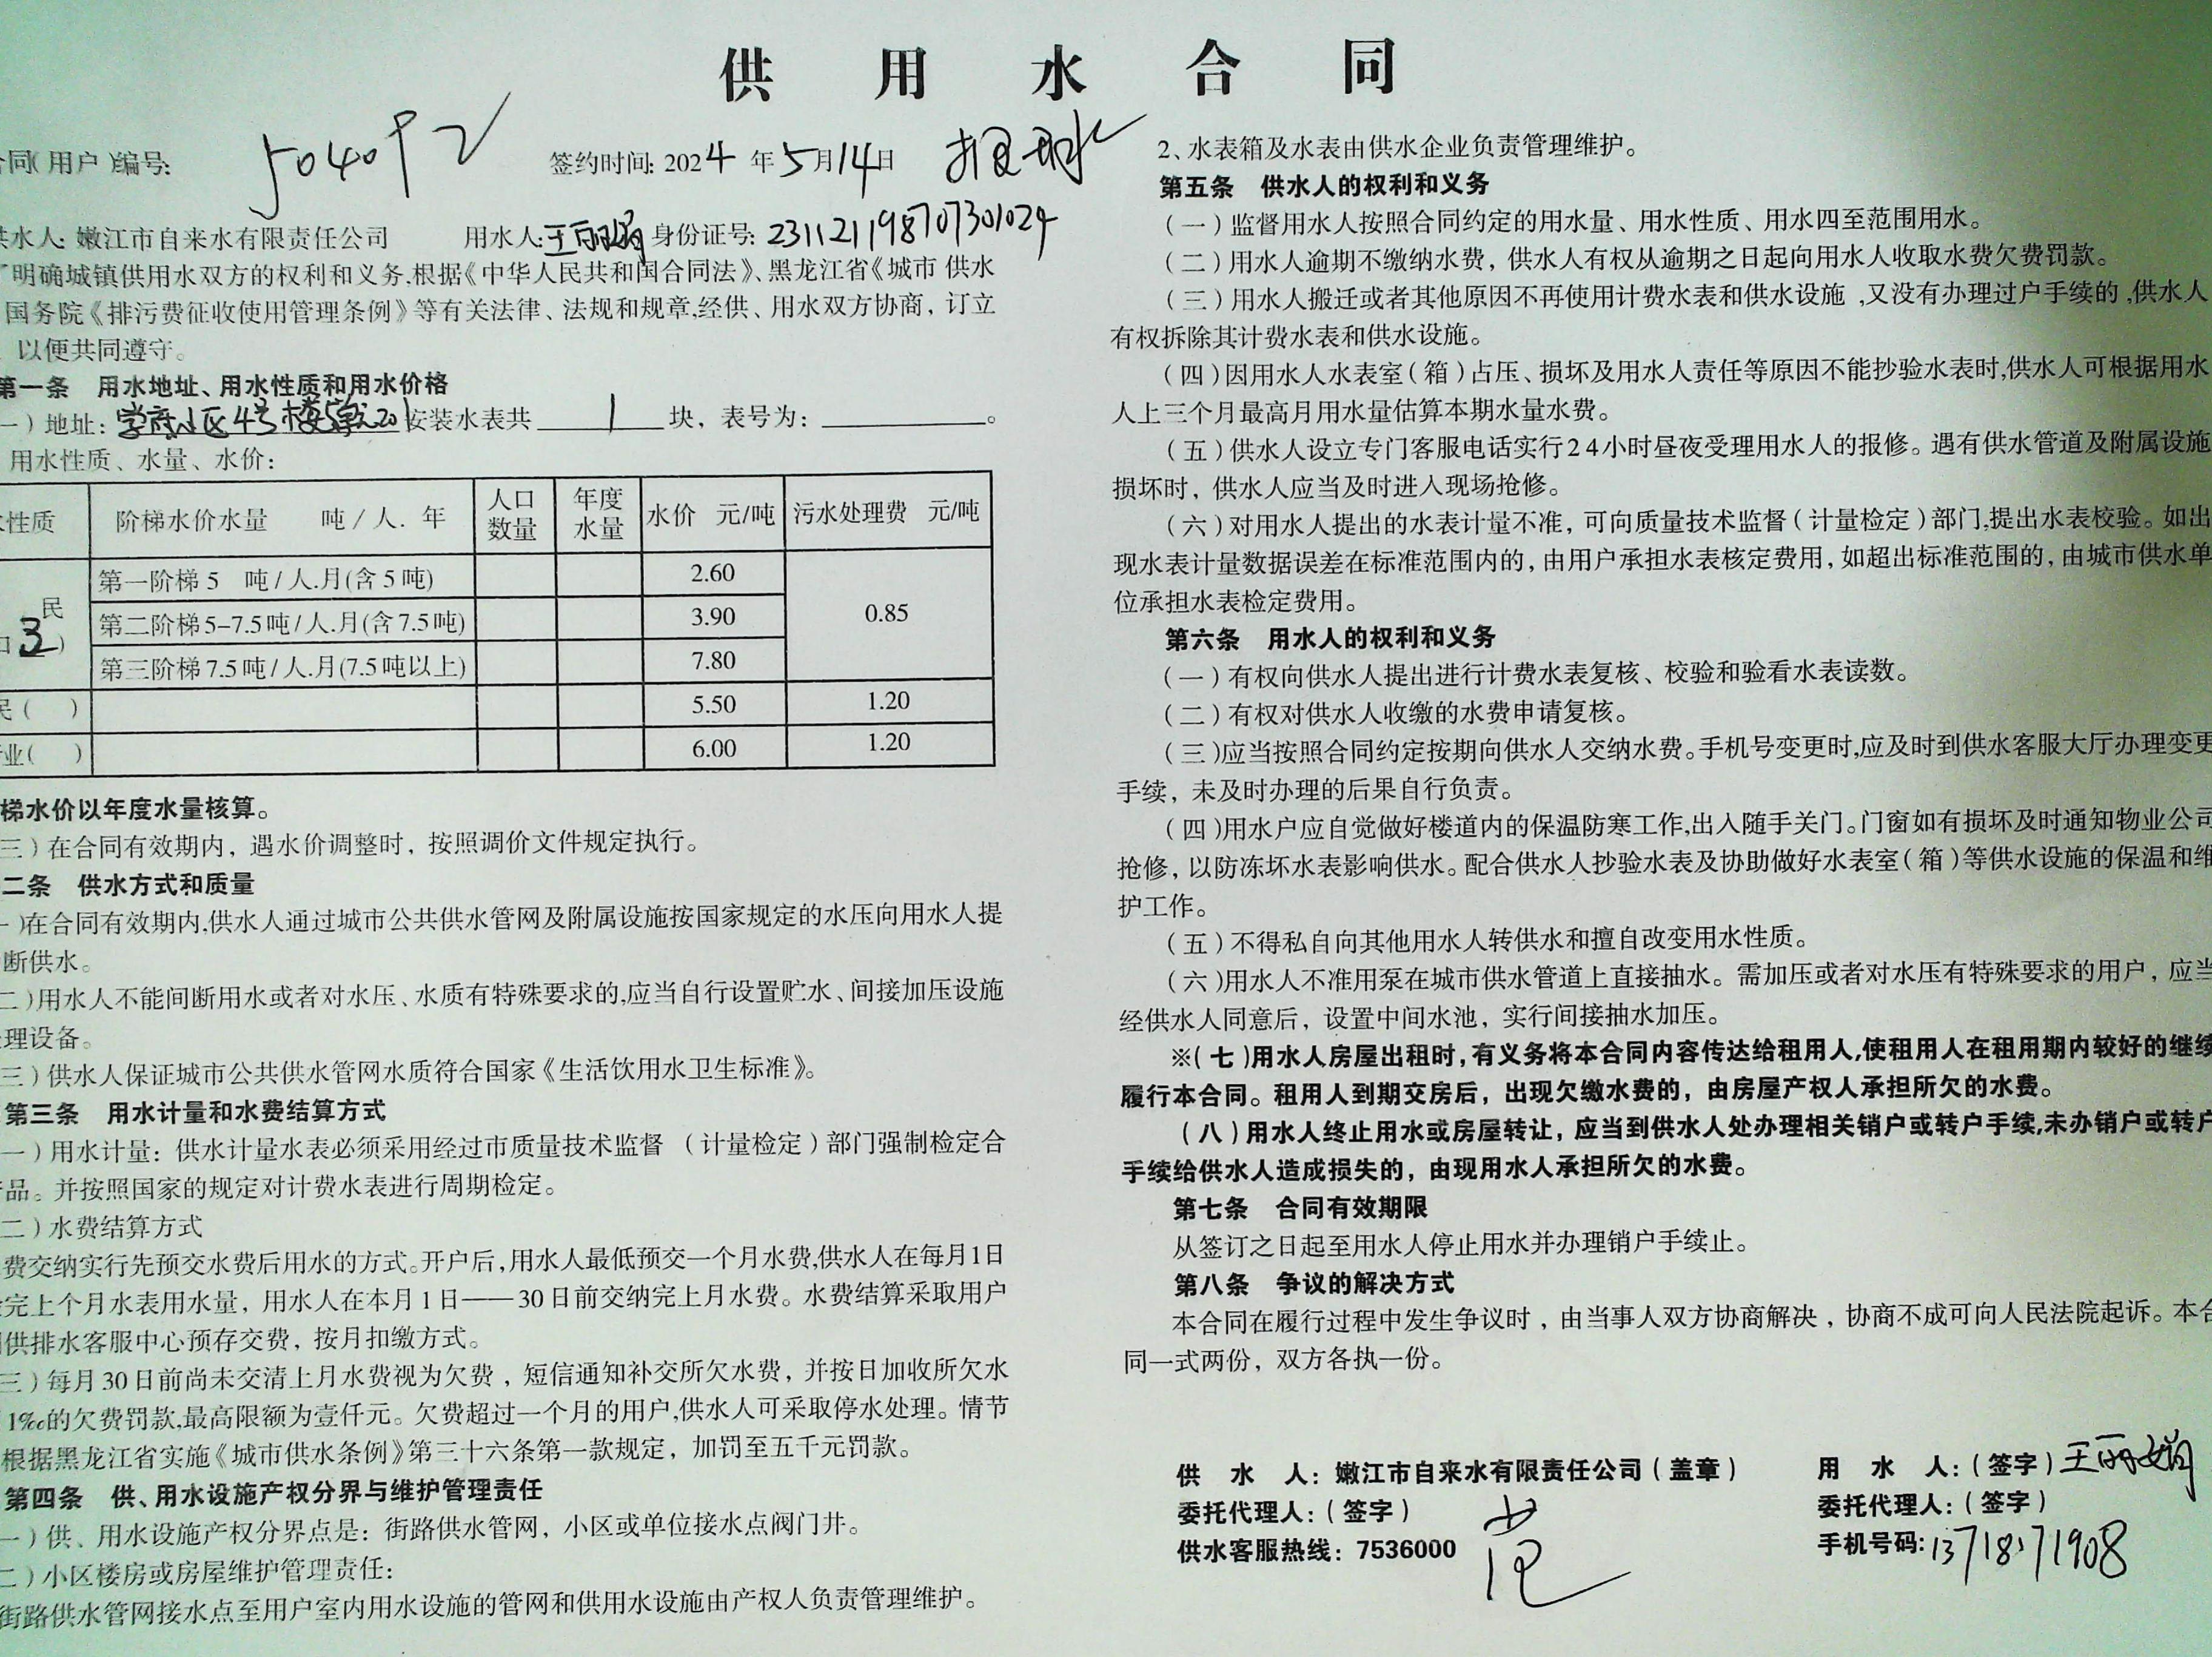 供用水合同
同(用户)编号: 504092
签约时间: 2024年5月14日
水人: 嫩江市自来水有限责任公司 用水人: 王丽娟 身份证号: 231121198707301024
明确城镇供用水双方的权利和义务,根据《中华人民共和国合同法》、黑龙江省《城市 供水
国务院《排污费征收使用管理条例》等有关法律、法规和规章,经供、用水双方协商，订立
以便共同遵守。
第一条 用水地址、用水性质和用水价格
一）地址：学府小区4号楼 201 安装水表共 1 块，表号为：。
用水性质、水量、水价：
性质 阶梯水价水量 吨/人.年 人口数量 年度水量 水价 元/吨 污水处理费 元/吨
民
口3）
第一阶梯 5 吨/人.月(含5吨) 2.60 0.85
第二阶梯 5–7.5吨/人.月(含7.5吨) 3.90
第三阶梯 7.5吨/人.月(7.5吨以上) 7.80
民（ ） 5.50 1.20
业（ ） 6.00 1.20
梯水价以年度水量核算。
三）在合同有效期内，遇水价调整时，按照调价文件规定执行。
二条 供水方式和质量
一)在合同有效期内,供水人通过城市公共供水管网及附属设施按国家规定的水压向用水人提
断供水。
二)用水人不能间断用水或者对水压、水质有特殊要求的,应当自行设置贮水、间接加压设施
理设备。
三）供水人保证城市公共供水管网水质符合国家《生活饮用水卫生标准》。
第三条 用水计量和水费结算方式
一）用水计量：供水计量水表必须采用经过市质量技术监督 （计量检定）部门强制检定合
品。并按照国家的规定对计费水表进行周期检定。
二）水费结算方式
费交纳实行先预交水费后用水的方式。开户后,用水人最低预交一个月水费,供水人在每月1日
完上个月水表用水量，用水人在本月1日——30日前交纳完上月水费。水费结算采取用户
供排水客服中心预存交费，按月扣缴方式。
三）每月30日前尚未交清上月水费视为欠费，短信通知补交所欠水费，并按日加收所欠水
1‰的欠费罚款,最高限额为壹仟元。欠费超过一个月的用户,供水人可采取停水处理。情节
根据黑龙江省实施《城市供水条例》第三十六条第一款规定，加罚至五千元罚款。
第四条 供、用水设施产权分界与维护管理责任
一）供、用水设施产权分界点是：街路供水管网，小区或单位接水点阀门井。
二）小区楼房或房屋维护管理责任：
街路供水管网接水点至用户室内用水设施的管网和供用水设施由产权人负责管理维护。
2、水表箱及水表由供水企业负责管理维护。
第五条 供水人的权利和义务
（一）监督用水人按照合同约定的用水量、用水性质、用水四至范围用水。
（二）用水人逾期不缴纳水费，供水人有权从逾期之日起向用水人收取水费欠费罚款。
（三）用水人搬迁或者其他原因不再使用计费水表和供水设施，又没有办理过户手续的，供水人
有权拆除其计费水表和供水设施。
（四）因用水人水表室（箱）占压、损坏及用水人责任等原因不能抄验水表时,供水人可根据用水
人上三个月最高月用水量估算本期水量水费。
（五）供水人设立专门客服电话实行24小时昼夜受理用水人的报修。遇有供水管道及附属设施
损坏时，供水人应当及时进入现场抢修。
（六）对用水人提出的水表计量不准，可向质量技术监督（计量检定）部门,提出水表校验。如出
现水表计量数据误差在标准范围内的，由用户承担水表核定费用，如超出标准范围的，由城市供水单
位承担水表检定费用。
第六条 用水人的权利和义务
（一）有权向供水人提出进行计费水表复核、校验和验看水表读数。
（二）有权对供水人收缴的水费申请复核。
（三)应当按照合同约定按期向供水人交纳水费。手机号变更时,应及时到供水客服大厅办理变更
手续，未及时办理的后果自行负责。
（四)用水户应自觉做好楼道内的保温防寒工作,出入随手关门。门窗如有损坏及时通知物业公司
抢修，以防冻坏水表影响供水。配合供水人抄验水表及协助做好水表室（箱）等供水设施的保温和维
护工作。
（五）不得私自向其他用水人转供水和擅自改变用水性质。
（六)用水人不准用泵在城市供水管道上直接抽水。需加压或者对水压有特殊要求的用户，应当
经供水人同意后，设置中间水池，实行间接抽水加压。
※(七)用水人房屋出租时,有义务将本合同内容传达给租用人,使租用人在租用期内较好的继续
履行本合同。租用人到期交房后，出现欠缴水费的，由房屋产权人承担所欠的水费。
（八）用水人终止用水或房屋转让，应当到供水人处办理相关销户或转户手续,未办销户或转户
手续给供水人造成损失的，由现用水人承担所欠的水费。
第七条 合同有效期限
从签订之日起至用水人停止用水并办理销户手续止。
第八条 争议的解决方式
本合同在履行过程中发生争议时，由当事人双方协商解决，协商不成可向人民法院起诉。本合
同一式两份，双方各执一份。
供水人：嫩江市自来水有限责任公司（盖章） 用水人：（签字）王丽娟
委托代理人：（签字） 委托代理人：（签字）
供水客服热线：7536000 手机号码: 13718171908